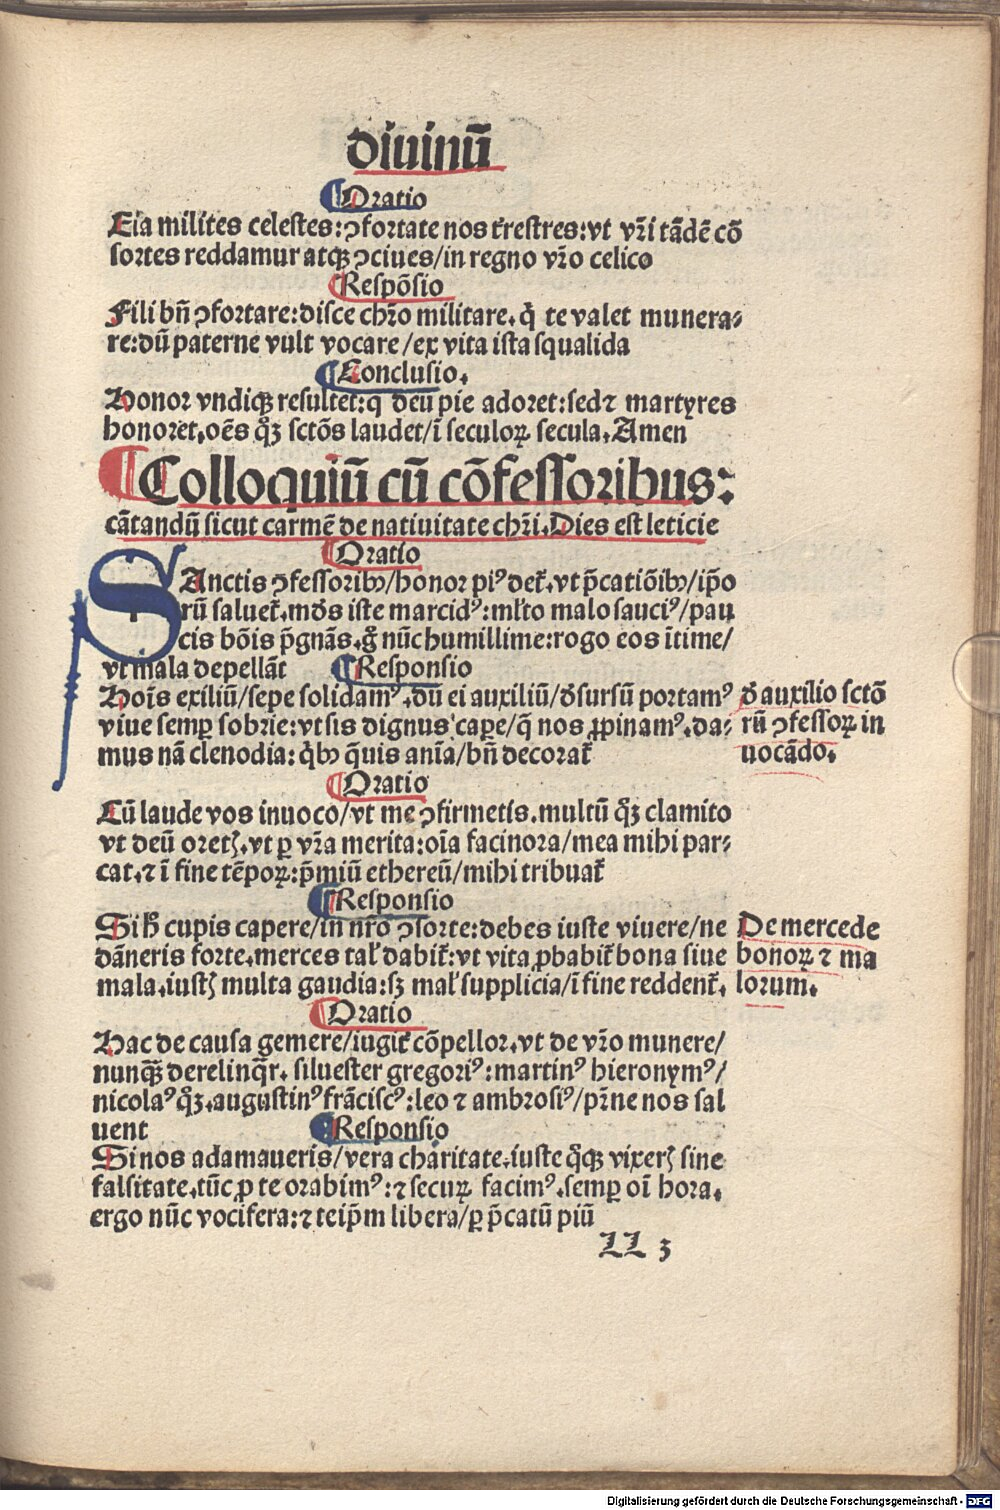 diuinū
¶Oratio
Eia milites celestes: ꝯfortate nos tr̄restres: vt vr̄i tādē cō
sortes reddamur atqꝫ ꝯciues/ in regno vr̄o celico
¶Respōsio
Fili bn̄ ꝯfortare: disce chr̄o militare. q̄ te valet munera⸗
re: dū paterne vult vocare/ ex vita ista squalida
¶Conclusio.
Honor vndiqꝫ resultet: q deū pie adoret: sed ⁊ martyres
honoret. oēs qꝫ sctōs laudet/ ī seculoꝝ secula. Amen
¶Colloquiū cū cōfessoribus:
cātandū sicut carmē de natiuitate chr̄i. Dies est leticie
¶Oratio
SAnctis ꝯfessoribꝰ/ honor piꝰ det̄. vt p̄catiōibꝰ/ ip̄o
rū saluet̄. mōs iste marcidꝰ: ml̄to malo sauciꝰ/ pau
cis bōis p̄gnās. g̊ nūc humillime: rogo eos ītime/
vt mala depellāt
¶Responsio
Hoīs exiliū/ sepe solidamꝰ. dū ei auxiliū/ d̄sursū portamꝰ
viue semꝑ sobrie: vt sis dignus caꝑe/ q̄ nos ꝓpinamꝰ. da⸗
mus nā clenodia: qbꝰ q̄uis anīa/ bn̄ decorat̄
d̄ auxilio sctō
rū ꝯfessoꝝ in
uocādo.
¶Oratio
Cū laude vos inuoco/ vt me ꝯfirmetis. multū qꝫ clamito
vt deū oretꝭ. vt ꝑ vr̄a merita: oīa facinora/ mea mihi par⸗
cat. ⁊ ī fine tēpoꝝ: p̄miū ethereū/ mihi tribuat̄
¶Responsio
Si hͦ cupis capere/ in nr̄o ꝯsorte: debes iuste viuere/ ne
dāneris forte. merces tal̄ dabit̄: vt vita ꝓbabit̄ bona siue
mala. iustꝭ multa gaudia: sꝫ mal̄ supplicia/ ī fine reddent̄.
De mercede
bonoꝝ ⁊ ma
lorum.
¶Oratio
Hac de causa gemere/ iugit̄ cōpellor. vt de vr̄o munere/
nunqꝫ derelinq̄r. siluester gregoriꝰ: martinꝰ hieronymꝰ/
nicolaꝰ qꝫ. augustinꝰ frāciscꝰ: leo ⁊ ambrosiꝰ/ pr̄ne nos sal
uent
¶Responsio
Si nos adamaueris/ vera charitate. iuste q̊qꝫ vixerꝭ sine
falsitate. tūc ꝓ te orabimꝰ: ⁊ securꝝ facimꝰ. semꝑ oī hora.
ergo nūc vocifera: ⁊ teip̄m libera/ ꝑ p̄catū piū
LL 3
Digitalisierung gefördert durch die Deutsche Forschungsgemeinschaft - DFG